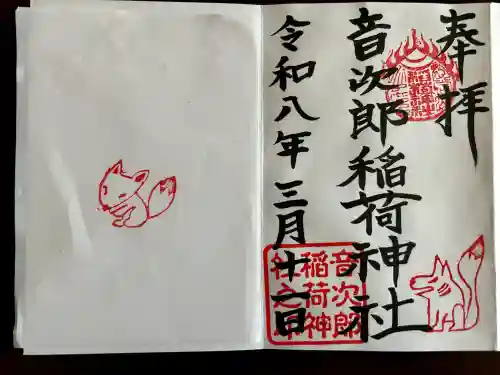 奉拝
音次郎稲荷神社
令和八年三月十一日
音次郎
稲荷神
社之印